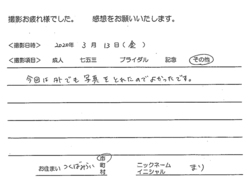 撮影お疲れ様でした。 感想をお願いいたします。
<撮影日時> 2020年 3月 13日(金)
<撮影項目> 成人 七五三 ブライダル 記念 その他
今回は外でも写真をとれたのでよかったです。
お住まい つくばみらい 市 町 村 ニックネーム イニシャル まり